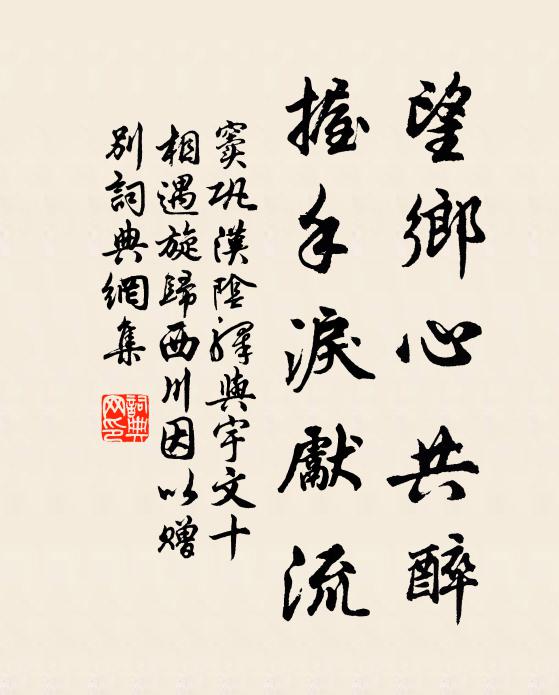 望鄉心共醉
握手淚獻流
竇巩漢陰驛與宇文十
相遇旋歸西川因以贈
別詞典網集
詞典
网印